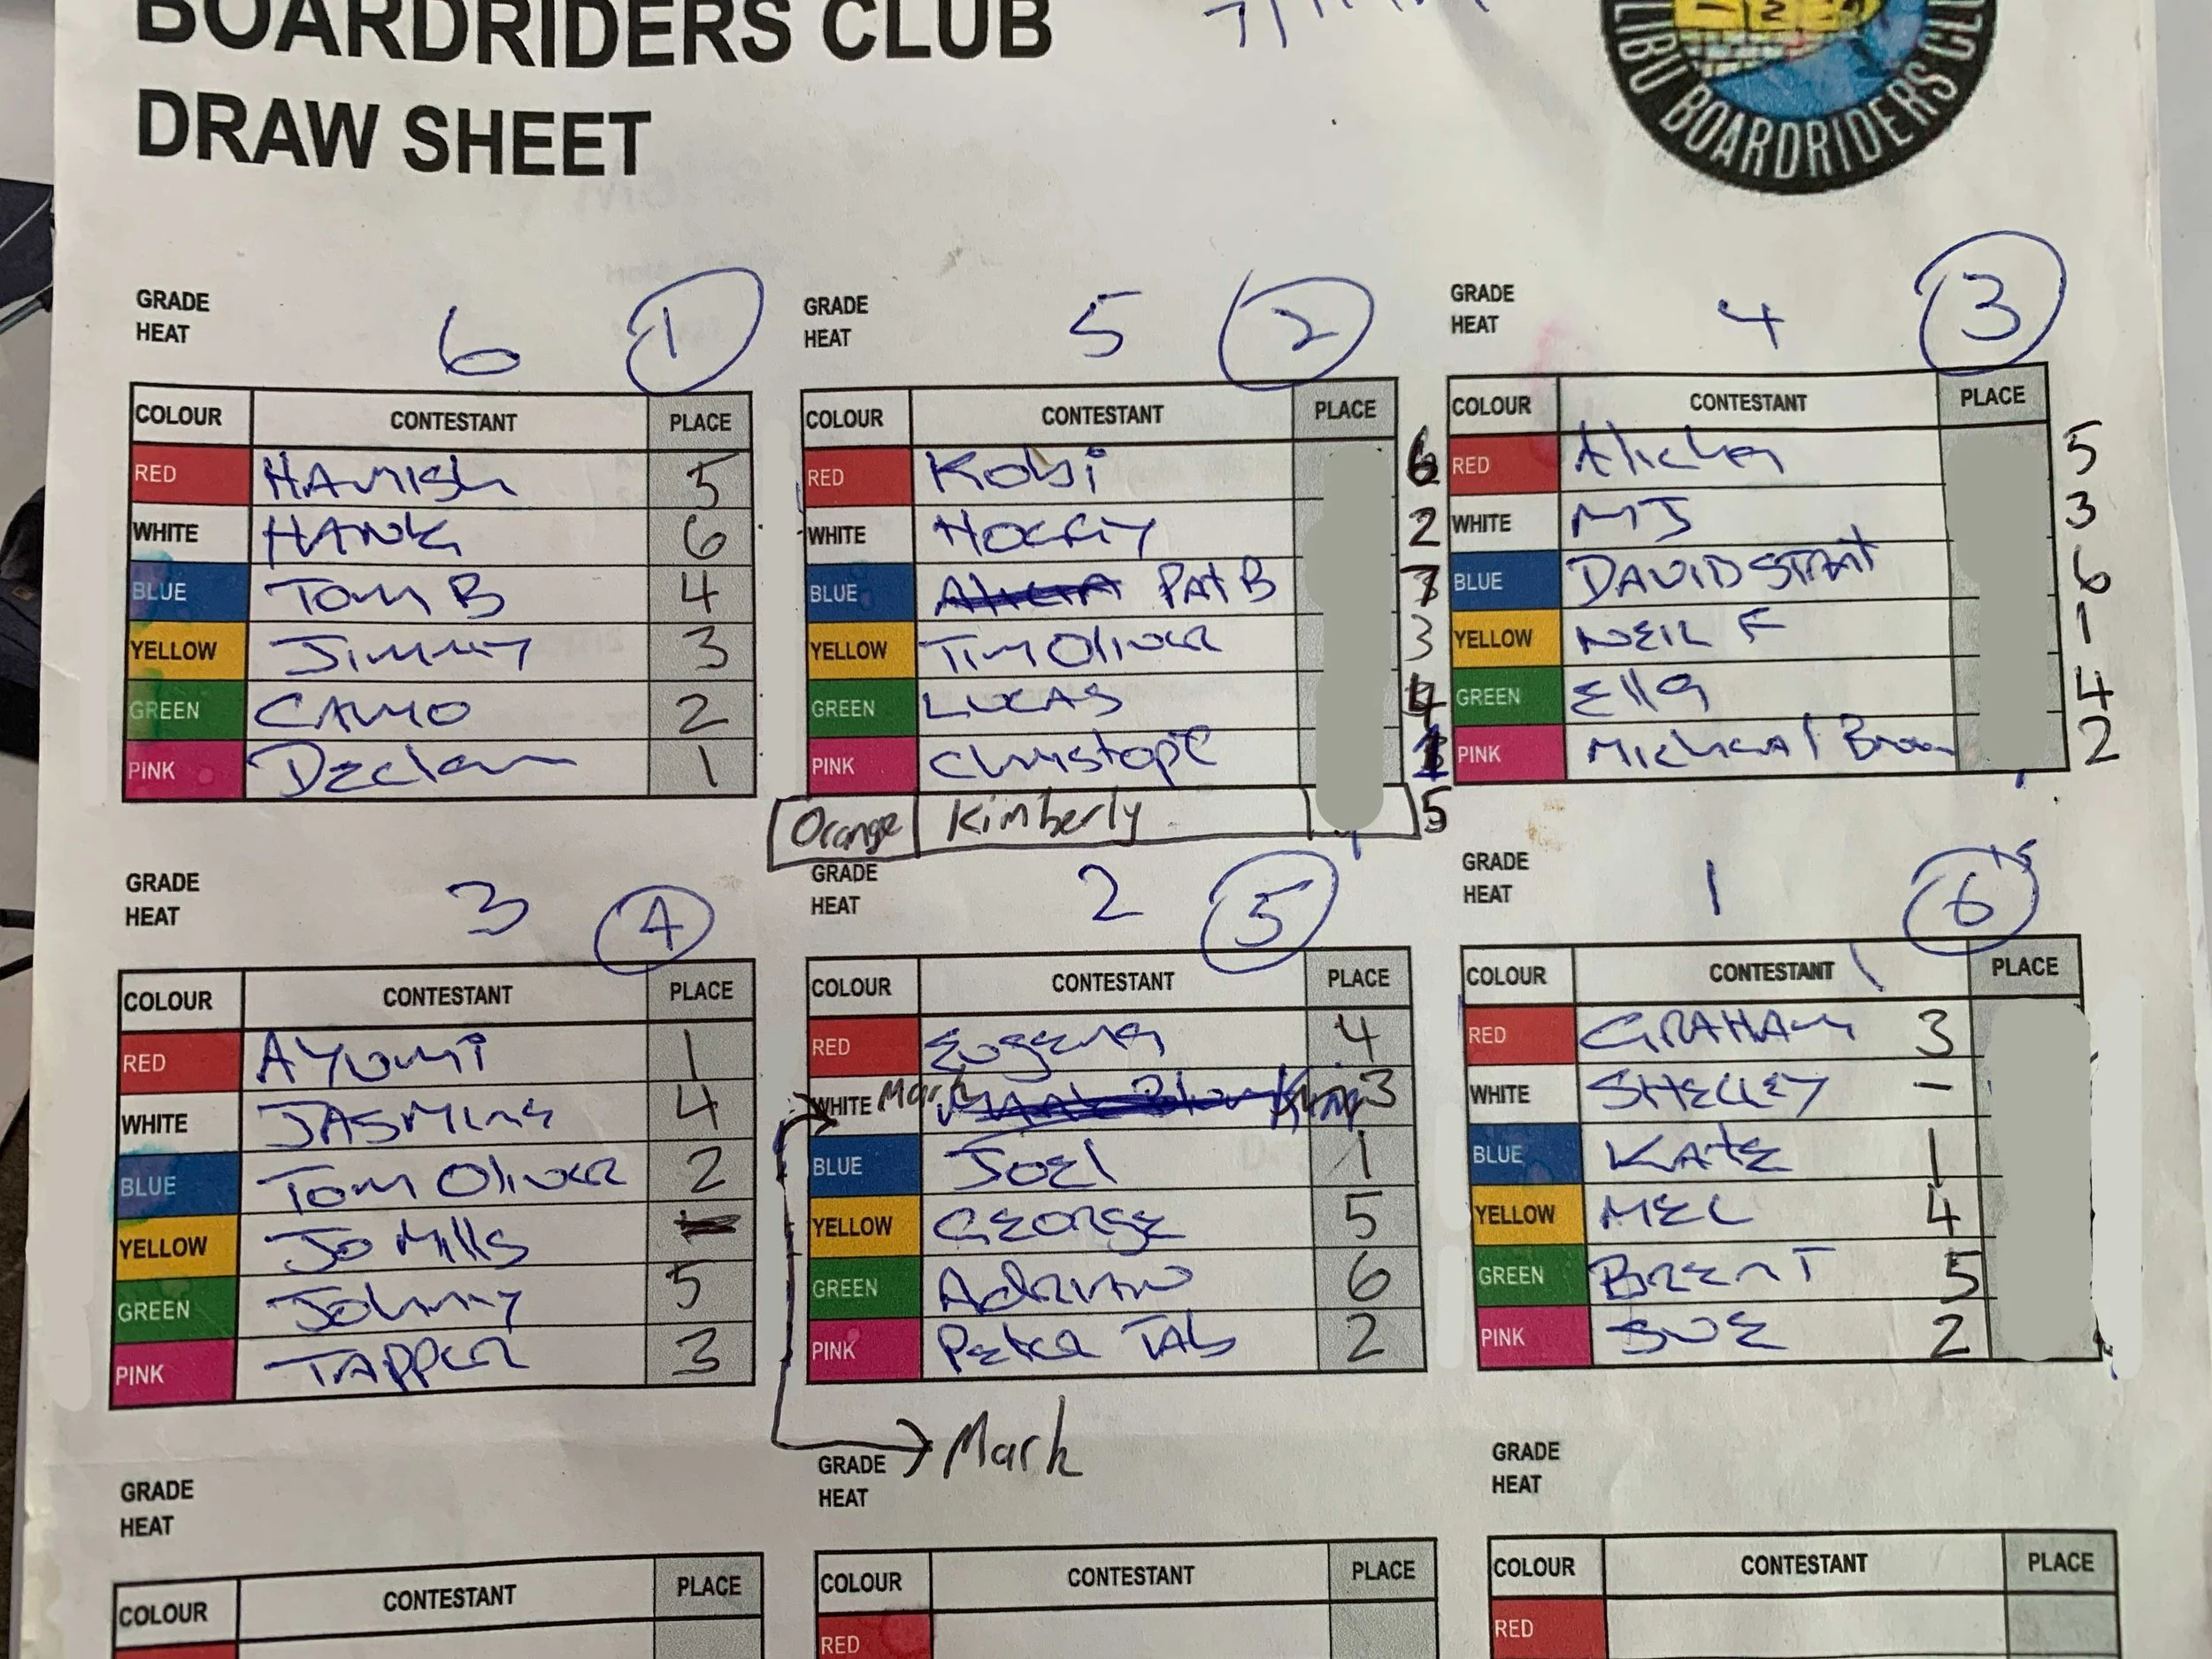 BOARDRIDERS CLUB
DRAW SHEET
LIBU BOARDRIDERS CLU
GRADE
HEAT 6 1
COLOUR CONTESTANT PLACE
RED HAMISH 5
WHITE HANK 6
BLUE Tom B 4
YELLOW Jimmy 3
GREEN CAMO 2
PINK Declan 1
GRADE
HEAT 5 2
COLOUR CONTESTANT PLACE
RED Kobi 6
WHITE 2
BLUE PAt B 7
YELLOW Tim Oliver 3
GREEN LUCAS 4
PINK Christope 1
Orange Kimberly 5
GRADE
HEAT 4 3
COLOUR CONTESTANT PLACE
RED 5
WHITE MJ 3
BLUE DAVID 6
YELLOW NEIL F 1
GREEN Ella 4
PINK Micheal 2
GRADE
HEAT 3 4
COLOUR CONTESTANT PLACE
RED AYUMi 1
WHITE JASMine 4
BLUE Tom Oliver 2
YELLOW Jo Mills
GREEN Johnny 5
PINK TAPPer 3
GRADE
HEAT 2 5
COLOUR CONTESTANT PLACE
RED Eugene 4
WHITE Mark 3
BLUE JOEl 1
YELLOW GEORGE 5
GREEN ADRIAN 6
PINK Peter TAb 2
Mark
GRADE
HEAT 1 6
COLOUR CONTESTANT PLACE
RED GRAHAM 3
WHITE SHELLEY -
BLUE KAtE 1
YELLOW MEL 4
GREEN BRENT 5
PINK SUE 2
GRADE
HEAT
COLOUR CONTESTANT PLACE
GRADE
HEAT
COLOUR CONTESTANT PLACE
RED
GRADE
HEAT
COLOUR CONTESTANT PLACE
RED